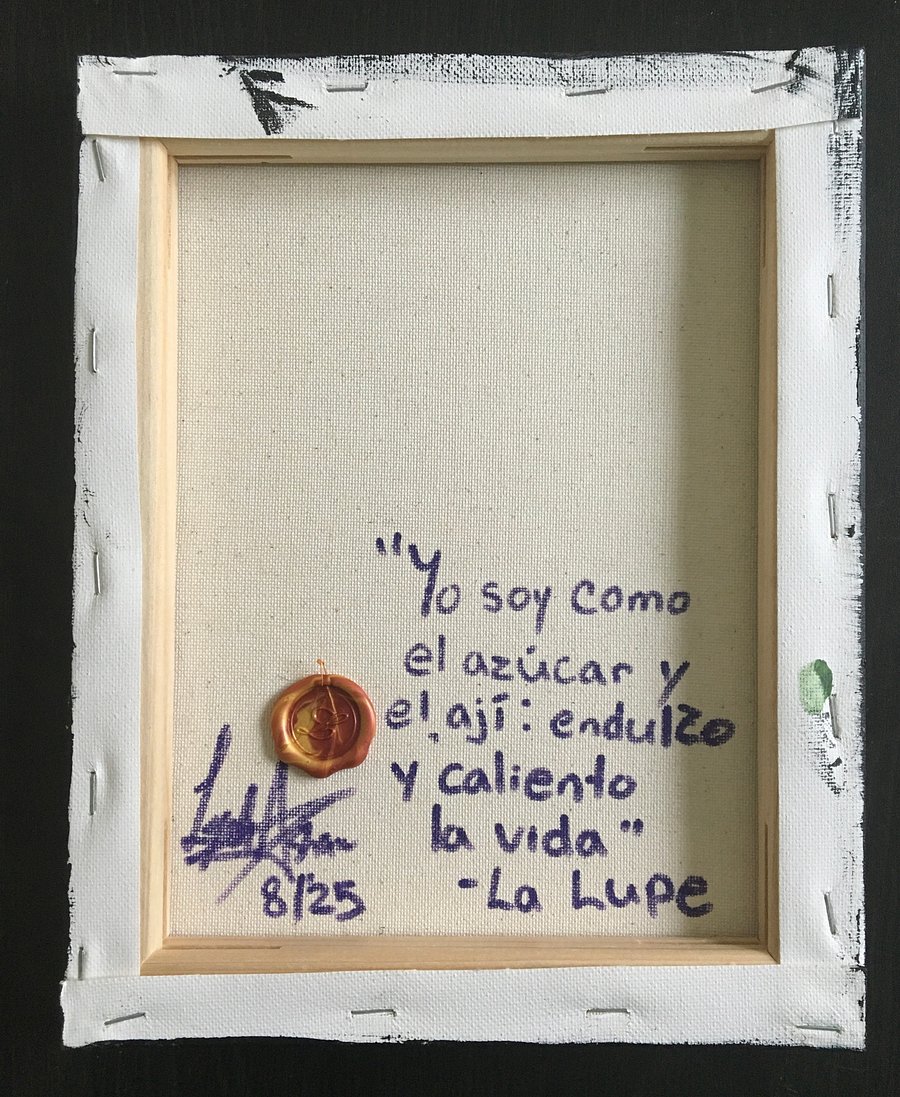 "Yo soy como
el azúcar y
el ají: endulzo
y caliento
la vida"
-La Lupe
8/25